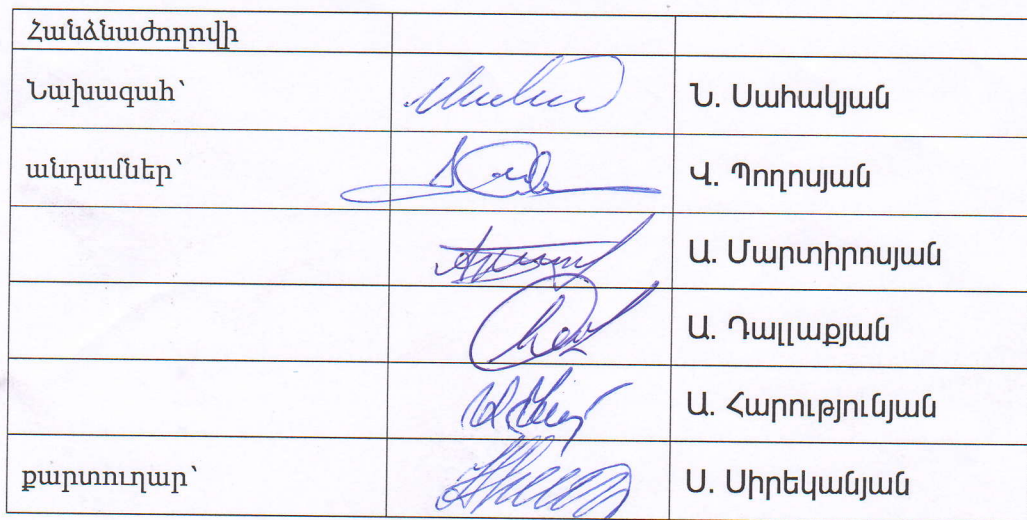 Հանձնաժողովի
Նախագահ՝ Ն. Սահակյան
անդամներ՝ Վ. Պողոսյան
Ա. Մարտիրոսյան
Ա. Դալլաքյան
Ա. Հարությունյան
քարտուղար՝ Ս. Սիրեկանյան